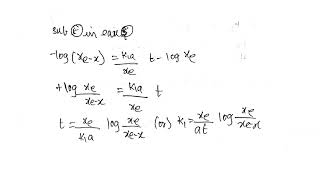 sub in
-log(xe-x) = k1a/xe t - log xe
+log xe/xe-x = k1a/xe t
t = xe/k1a log xe/xe-x (or) k1 = xe/at log xe/xe-x